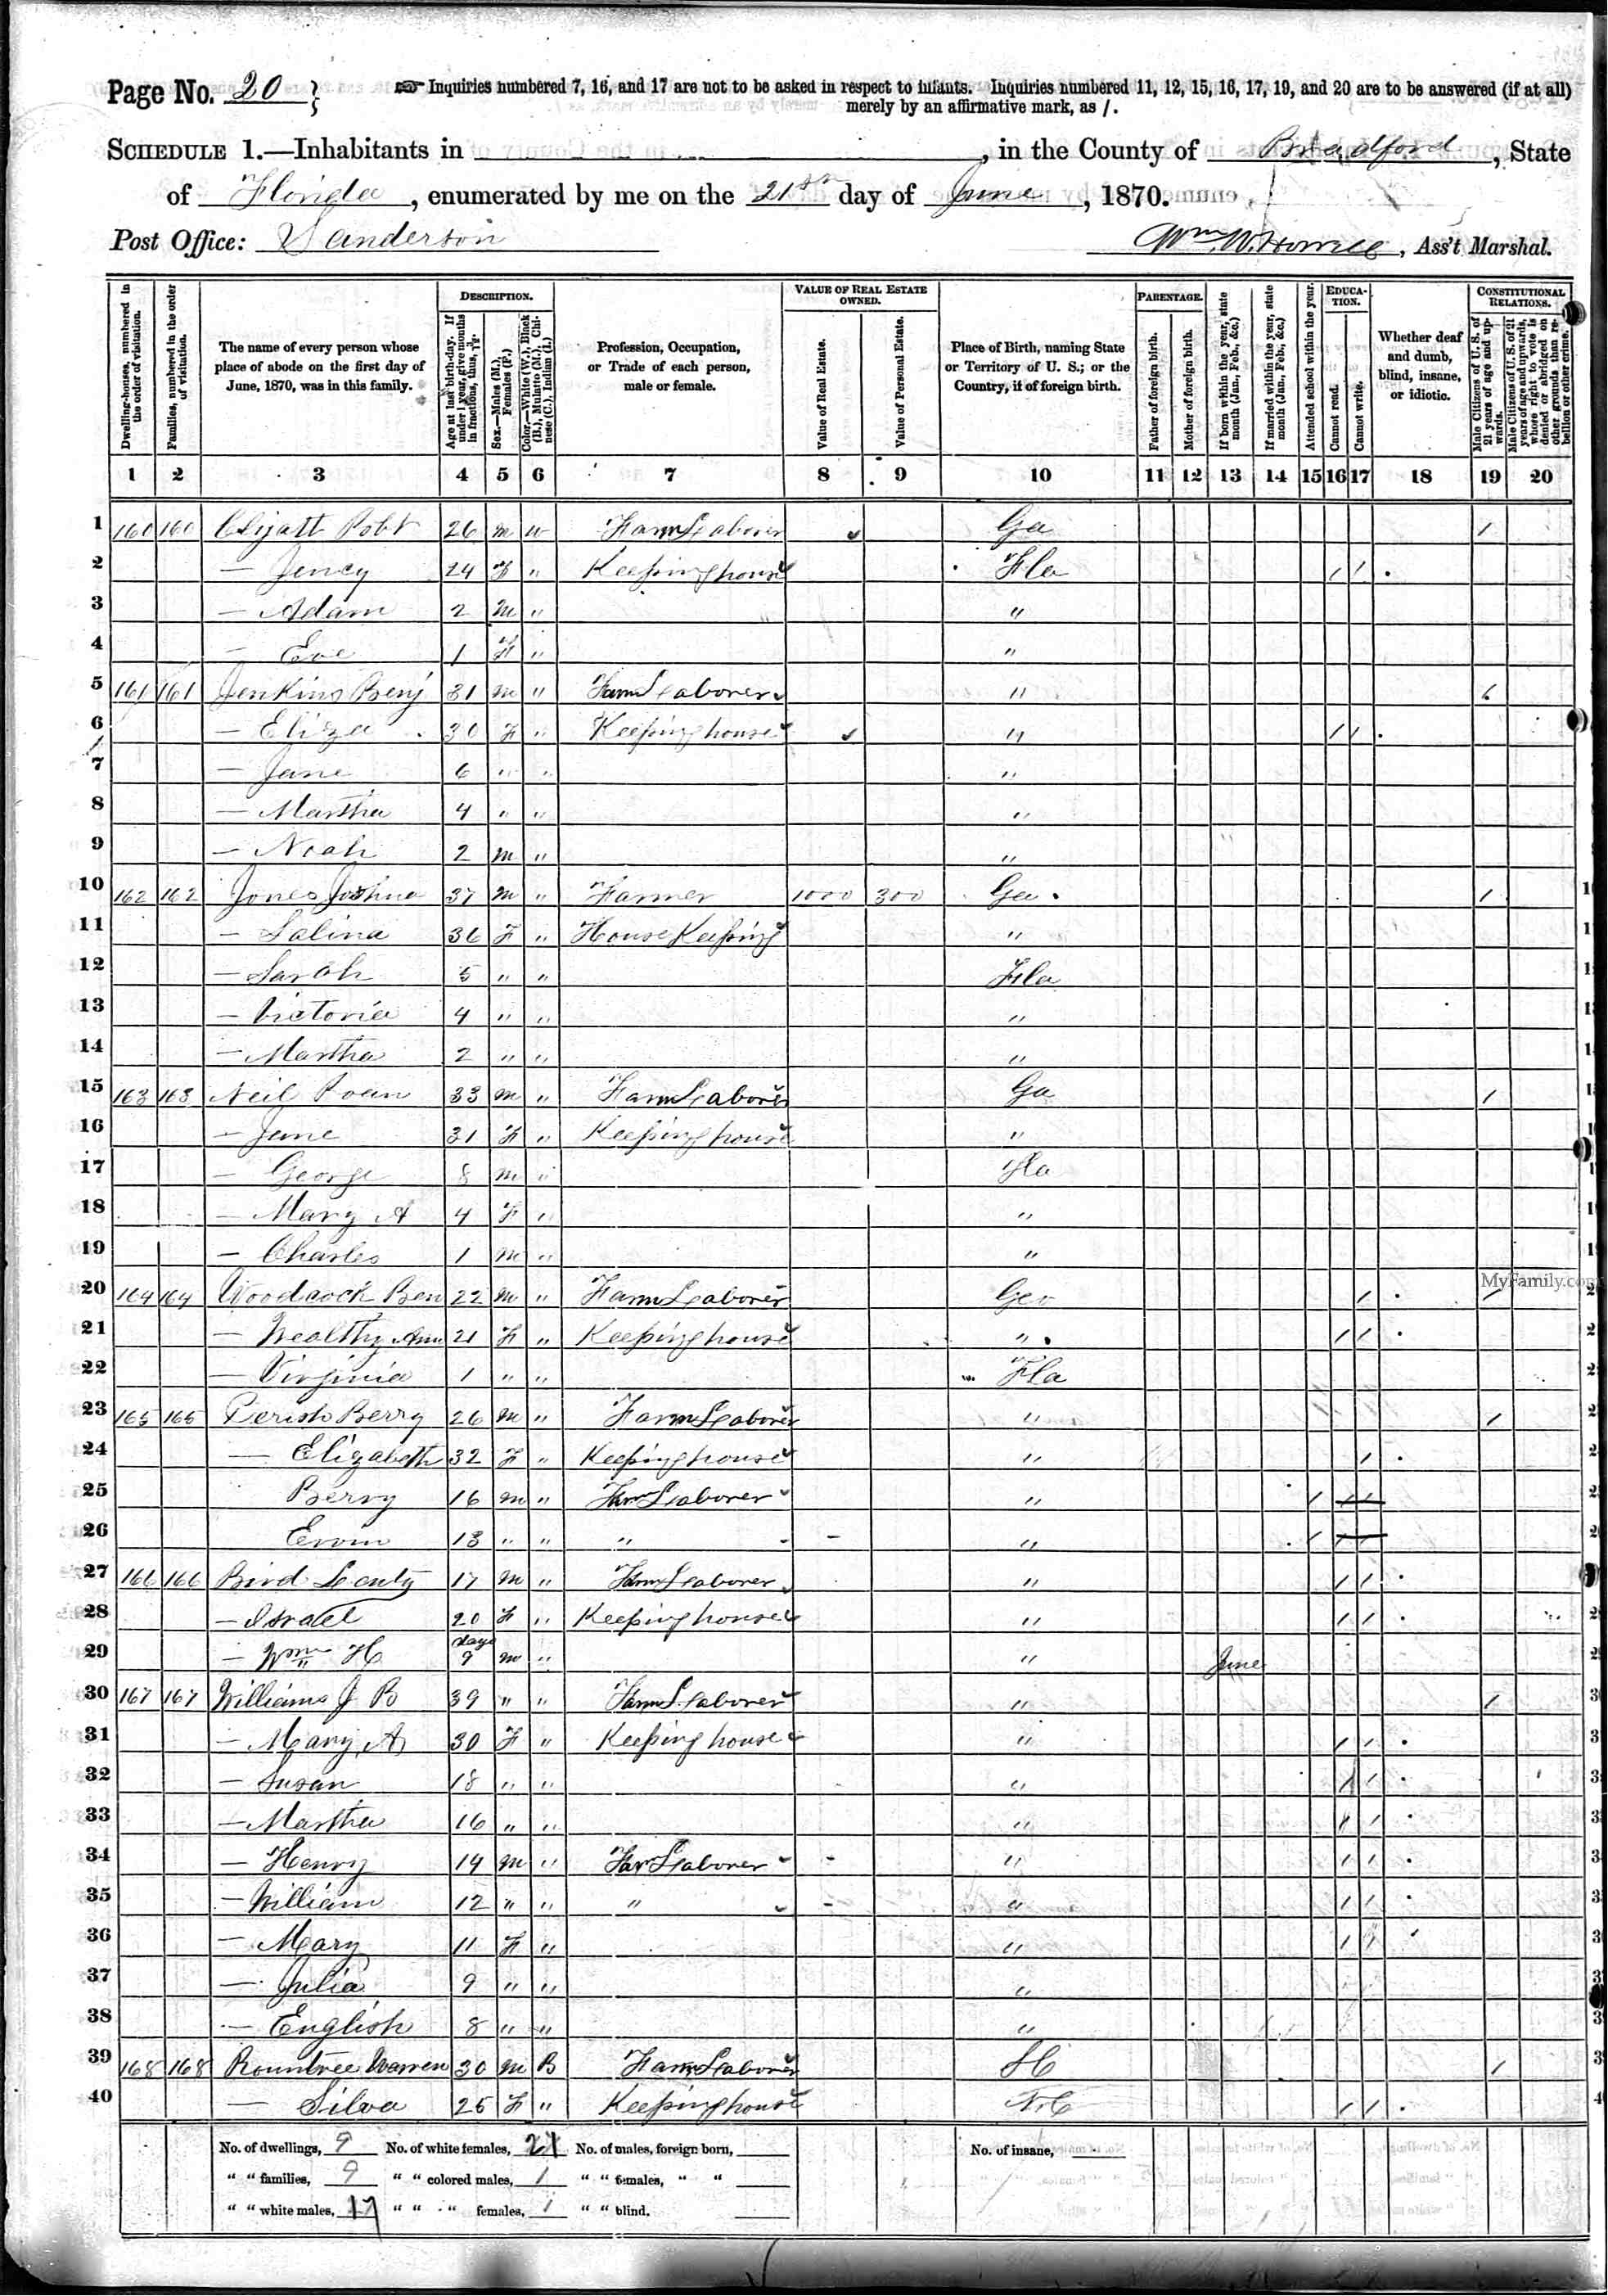 Page No. 20 } ☞ Inquiries numbered 7, 16, and 17 are not to be asked in respect to infants. Inquiries numbered 11, 12, 15, 16, 17, 19, and 20 are to be answered (if at all)
merely by an affirmative mark, as /.
SCHEDULE 1.—Inhabitants in , in the County of Bradford, State
of Florida, enumerated by me on the 21st day of June, 1870.
Post Office: Sanderson Wm. W. Howell, Ass't Marshal.
Dwelling-houses, numbered in the order of visitation.
Families, numbered in the order of visitation.
The name of every person whose place of abode on the first day of June, 1870, was in this family.
DESCRIPTION.
Age at last birth-day. If under 1 year, give months in fractions, thus, 3/12.
Sex.—Males (M.), Females (F.)
Color.—White (W.), Black (B.), Mulatto (M.), Chinese (C.), Indian (I.)
Profession, Occupation, or Trade of each person, male or female.
VALUE OF REAL ESTATE OWNED.
Value of Real Estate.
Value of Personal Estate.
Place of Birth, naming State or Territory of U. S.; or the Country, if of foreign birth.
PARENTAGE.
Father of foreign birth.
Mother of foreign birth.
If born within the year, state month (Jan., Feb., &c.)
If married within the year, state month (Jan., Feb., &c.)
Attended school within the year.
EDUCATION.
Cannot read.
Cannot write.
Whether deaf and dumb, blind, insane, or idiotic.
CONSTITUTIONAL RELATIONS.
Male Citizens of U. S. of 21 years of age and upwards.
Male Citizens of U. S. of 21 years of age and upwards, whose right to vote is denied or abridged on other grounds than rebellion or other crime.
1 2 3 4 5 6 7 8 9 10 11 12 13 14 15 16 17 18 19 20
1 160 160 Clyatt Robt 26 m w Farm Laborer Ga /
2 — Jency 24 F " Keeping house Fla / /
3 — Adam 2 M " "
4 — Eve 1 F " "
5 161 161 Jenkins Benj 31 m " Farm Laborer " /
6 — Eliza 30 F " Keeping house " / /
7 — Jane 6 " " "
8 — Martha 4 " " "
9 — Noah 2 m " "
10 162 162 Jones Joshua 37 m " Farmer 1000 300 Ga /
11 — Salina 36 F " House Keeping "
12 — Sarah 5 " " Fla
13 — Victoria 4 " " "
14 — Martha 2 " " "
15 163 163 Neil Roan 33 m " Farm Laborer Ga /
16 — Jane 31 F " Keeping house "
17 — George 8 m " Fla
18 — Mary A 4 F " "
19 — Charles 1 m " "
20 164 164 Woodcock Ben 22 m " Farm Laborer Geo / /
21 — Wealthy Ann 21 F " Keeping house " / /
22 — Virginia 1 " " Fla
23 165 165 Perish Berry 26 m " Farm Laborer " /
24 — Elizabeth 32 F " Keeping house " /
25 Berry 16 m " Far Laborer " / / /
26 Ervin 13 " " " " / / /
27 166 166 Bird Leonty 17 m " Farm Laborer " / /
28 — Israel 20 F " Keeping house " / /
29 — Wm H days 9 m " " June
30 167 167 Williams J B 39 " " Farm Laborer " /
31 — Mary A 30 F " Keeping house " / /
32 — Susan 18 " " " / /
33 — Martha 16 " " " / /
34 — Henry 14 m " Far Laborer " / /
35 — William 12 " " " " / /
36 — Mary 11 F " " / /
37 — Julia 9 " " "
38 — English 8 " " "
39 168 168 Rountree Warren 30 m B Farm Laborer SC /
40 — Silva 25 F " Keeping house N.C / /
No. of dwellings, 9 No. of white females, 21 No. of males, foreign born, No. of insane,
" " families, 9 " " colored males, 1 " " females, " "
" " white males, 17 " " " females, 1 " " blind,
MyFamily.com